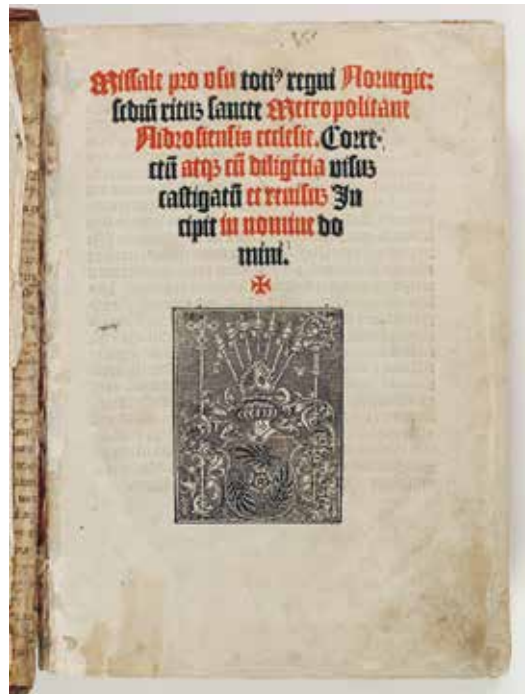 Missale pro vsu totiꝰ regni Noruegie:
scdm̄ ritūꝫ sancte Metropolitane
Nidrosiensis ecclesie. Corre-
ctū atqꝫ cū diligētia visuꝫ
castigatū et reuisuꝫ In
cipit in nomine do
mini.